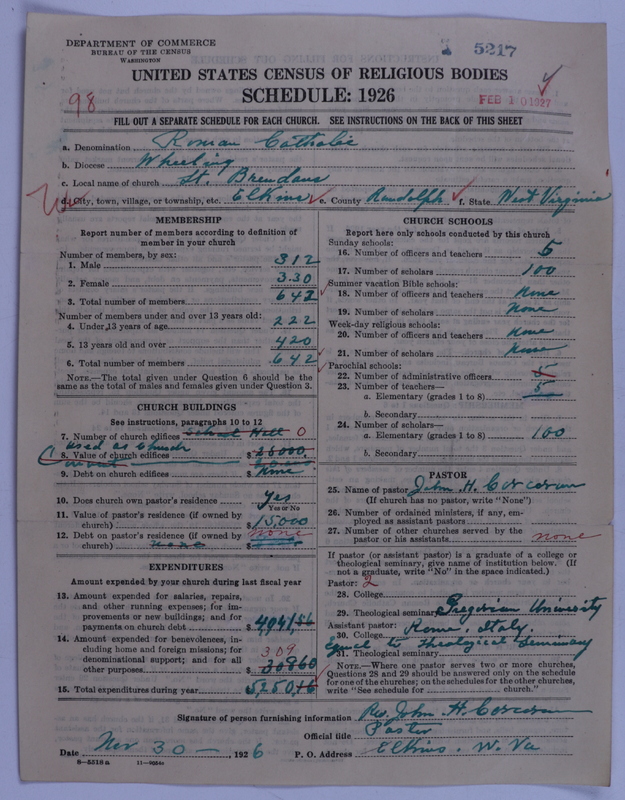 DEPARTMENT OF COMMERCE
BUREAU OF THE CENSUS
WASHINGTON
1 5217
UNITED STATES CENSUS OF RELIGIOUS BODIES
SCHEDULE: 1926
98
FEB 10 1927
FILL OUT A SEPARATE SCHEDULE FOR EACH CHURCH. SEE INSTRUCTIONS ON THE BACK OF THIS SHEET
a. Denomination Roman Catholic
b. Diocese Wheeling
c. Local name of church St. Brendans
d. City, town, village, or township, etc. Elkins e. County Randolph f. State West Virginia
MEMBERSHIP
Report number of members according to definition of
member in your church
Number of members, by sex:
1. Male 312
2. Female 330
3. Total number of members 642
Number of members under and over 13 years old:
4. Under 13 years of age 222
5. 13 years old and over 420
6. Total number of members 642
NOTE.—The total given under Question 6 should be
same as the total of males and females given under Question 3.
CHURCH BUILDINGS
See instructions, paragraphs 10 to 12
7. Number of church edifices School Hall 0
used as church
8. Value of church edifices $ 25000
9. Debt on church edifices $ None
10. Does church own pastor's residence Yes
Yes or No
11. Value of pastor's residence (if owned by
church) $ 15,000
12. Debt on pastor's residence (if owned by none
church) None $
EXPENDITURES
Amount expended by your church during last fiscal year
13. Amount expended for salaries, repairs,
and other running expenses; for im-
provements or new buildings; and for
payments on church debt $ 4,941.56
14. Amount expended for benevolences, in-
cluding home and foreign missions; for 309
denominational support; and for all
other purposes $ 308.60
15. Total expenditures during year $ 5,250.16
CHURCH SCHOOLS
Report here only schools conducted by this church
Sunday schools:
16. Number of officers and teachers 5
17. Number of scholars 100
Summer vacation Bible schools:
18. Number of officers and teachers None
19. Number of scholars None
Week-day religious schools:
20. Number of officers and teachers None
21. Number of scholars None
Parochial schools:
22. Number of administrative officers 5
23. Number of teachers—
a. Elementary (grades 1 to 8) 5
b. Secondary
24. Number of scholars—
a. Elementary (grades 1 to 8) 100
b. Secondary
PASTOR
25. Name of pastor John H. Corcoran
(If church has no pastor, write "None")
26. Number of ordained ministers, if any, em-
ployed as assistant pastors
27. Number of other churches served by the
pastor or his assistants none
If pastor (or assistant pastor) is a graduate of a college or
theological seminary, give name of institution below. (If
not a graduate, write "No" in the space indicated.)
Pastor: 2
28. College
29. Theological seminary Gregorian University
Assistant pastor: Rome, Italy.
30. College Equal to Theological Seminary
31. Theological seminary
NOTE.—Where one pastor serves two or more churches,
Questions 28 and 29 should be answered only on the schedule
for one of the churches; on the schedules for the other churches,
write "See schedule for church."
Signature of person furnishing information Rev. John H. Corcoran
Official title Pastor
Date Nov 30 — , 1926 P. O. Address Elkins. W. Va
8—5518a